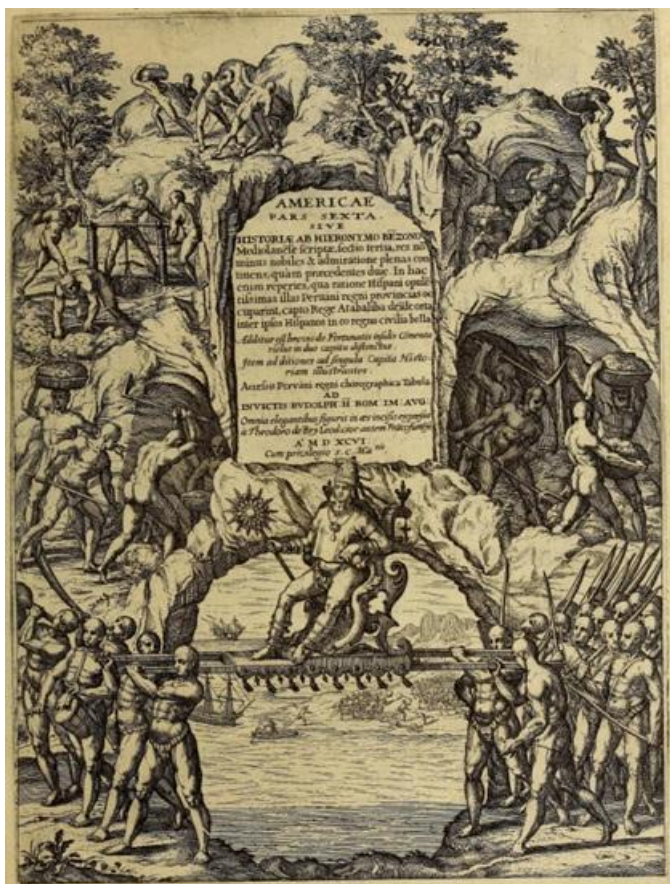 AMERICAE
PARS SEXTA
SIVE
HISTORIÆ AB HIERONYMO BEZONO
Mediolanẽse scriptæ, sectio tertia, res nõ
minus nobiles & admiratione plenas con
tinens, quàm præcedentes duæ. In hac
enim reperies, qua ratione Hispani opulẽ
tissimas illas Peruani regni provincias oc
cuparint, capto Rege Atabaliba: deĩde orta
inter ipsos Hispanos in eo regno civilia bella
Additus est brevis de Fortunatis insulis Cõmenta
riolus in duo capita distinctus
Item additiones ad singula Capita Histo-
riam illustrantes.
Accessit Peruani regni chorographica Tabula
AD
INVICTIS RUDOLPH II ROM IM: AUG
Omnia elegantibus figuris in æs incisis expressa
à Theodoro de Bry Leod cive autem
A° M D XCVI
Cum privilegio S. C. Ma.tis